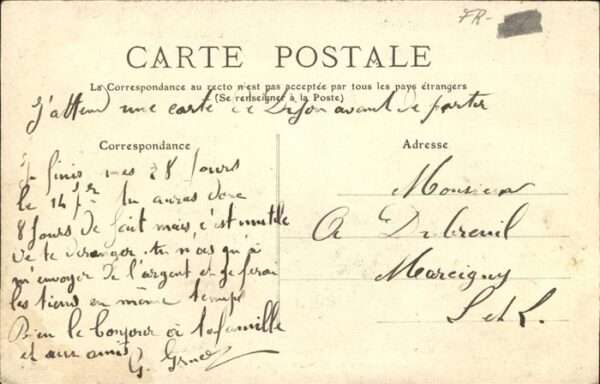 FR-
CARTE POSTALE
La Correspondance au recto n'est pas acceptée par tous les pays étrangers
(Se renseigner à la Poste)
J'attend une carte de Dijon avant de partir
Correspondance
Adresse
Je finis mes 28 Jours
le 14 tu auras donc
8 Jours de fait mais, c'est inutile
de te deranger, tu n'as qu'à
m'envoyer de l'argent et je ferai
les tiens en même temps
Bien le bonjour à ta famille
et aux amis
G.
Monsieur
A Dubreuil
Marcigny
S et L.